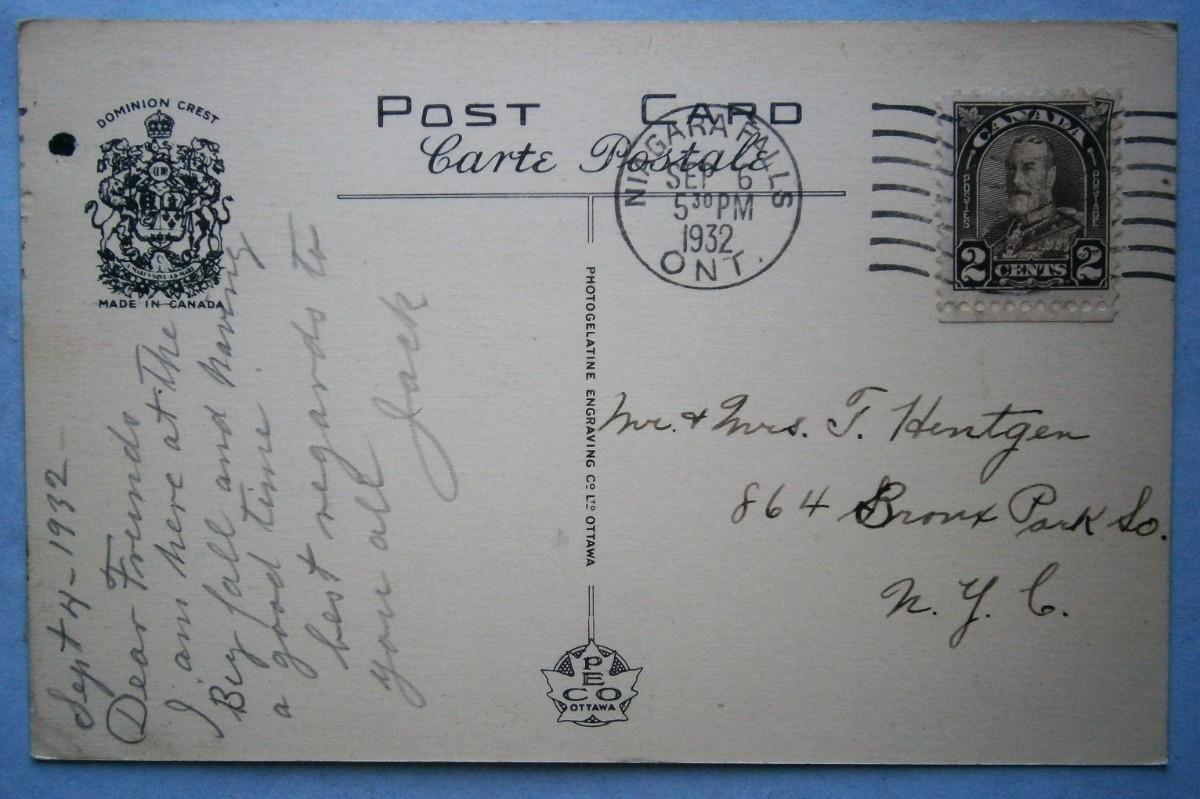 DOMINION CREST
A MARI VSQVE AD MARE
MADE IN CANADA
POST CARD
Carte Postale
NIAGARA FALLS
SEP 6
5 30 PM
1932
ONT.
CANADA
POSTES
POSTAGE
2 CENTS 2
Sept 4 - 1932
Dear Freinds
I am here at the
Big fall and having
a good time
best regards to
you all Jack
PHOTOGELATINE ENGRAVING CO LTD OTTAWA
PECO
OTTAWA
Mr. & Mrs. T. Hentgen
864 Bronx Park So.
N. Y. C.